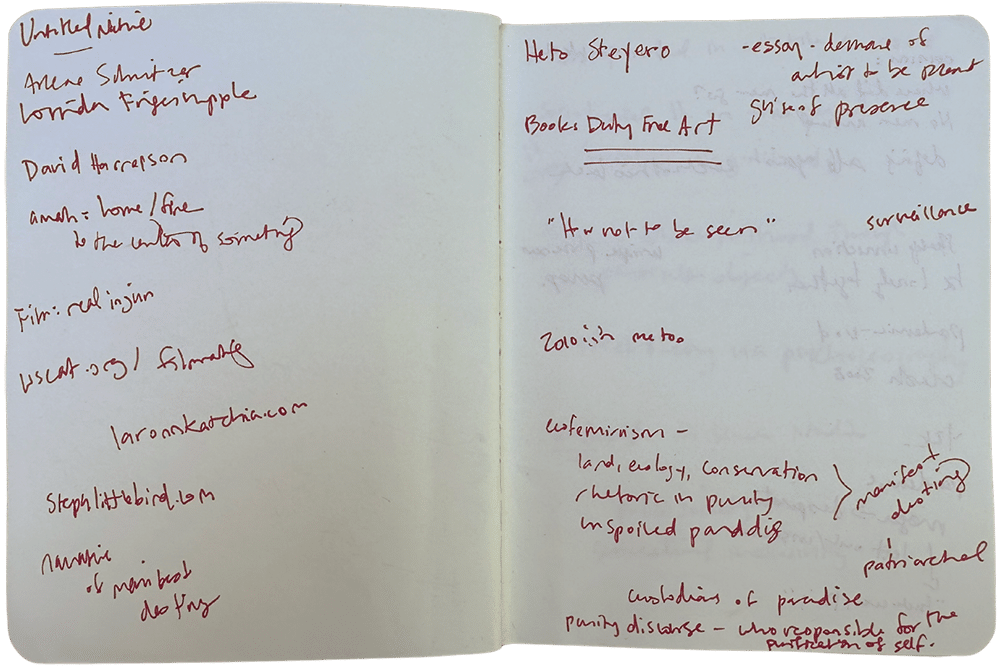 Untitled Native
Arlene Schnitzer
David Harrelson
amah = home / fire
to the center of something
Film: real injun
wscat.org / filmmaking
laronnkatchia.com
stephlittlebird.com
narrative
of manifest
destiny
Heto Steyero
- essay - demand of
artist to be present
guise of presence
Books Duty Free Art
"How not to be seen"
surveillance
2010ish me too
ecofeminism -
land, ecology, conservation
rhetoric in purity
unspoiled paradise
manifest
destiny
patriarchal
custodians of paradise
purity discourse - who responsible for the
purification of self.